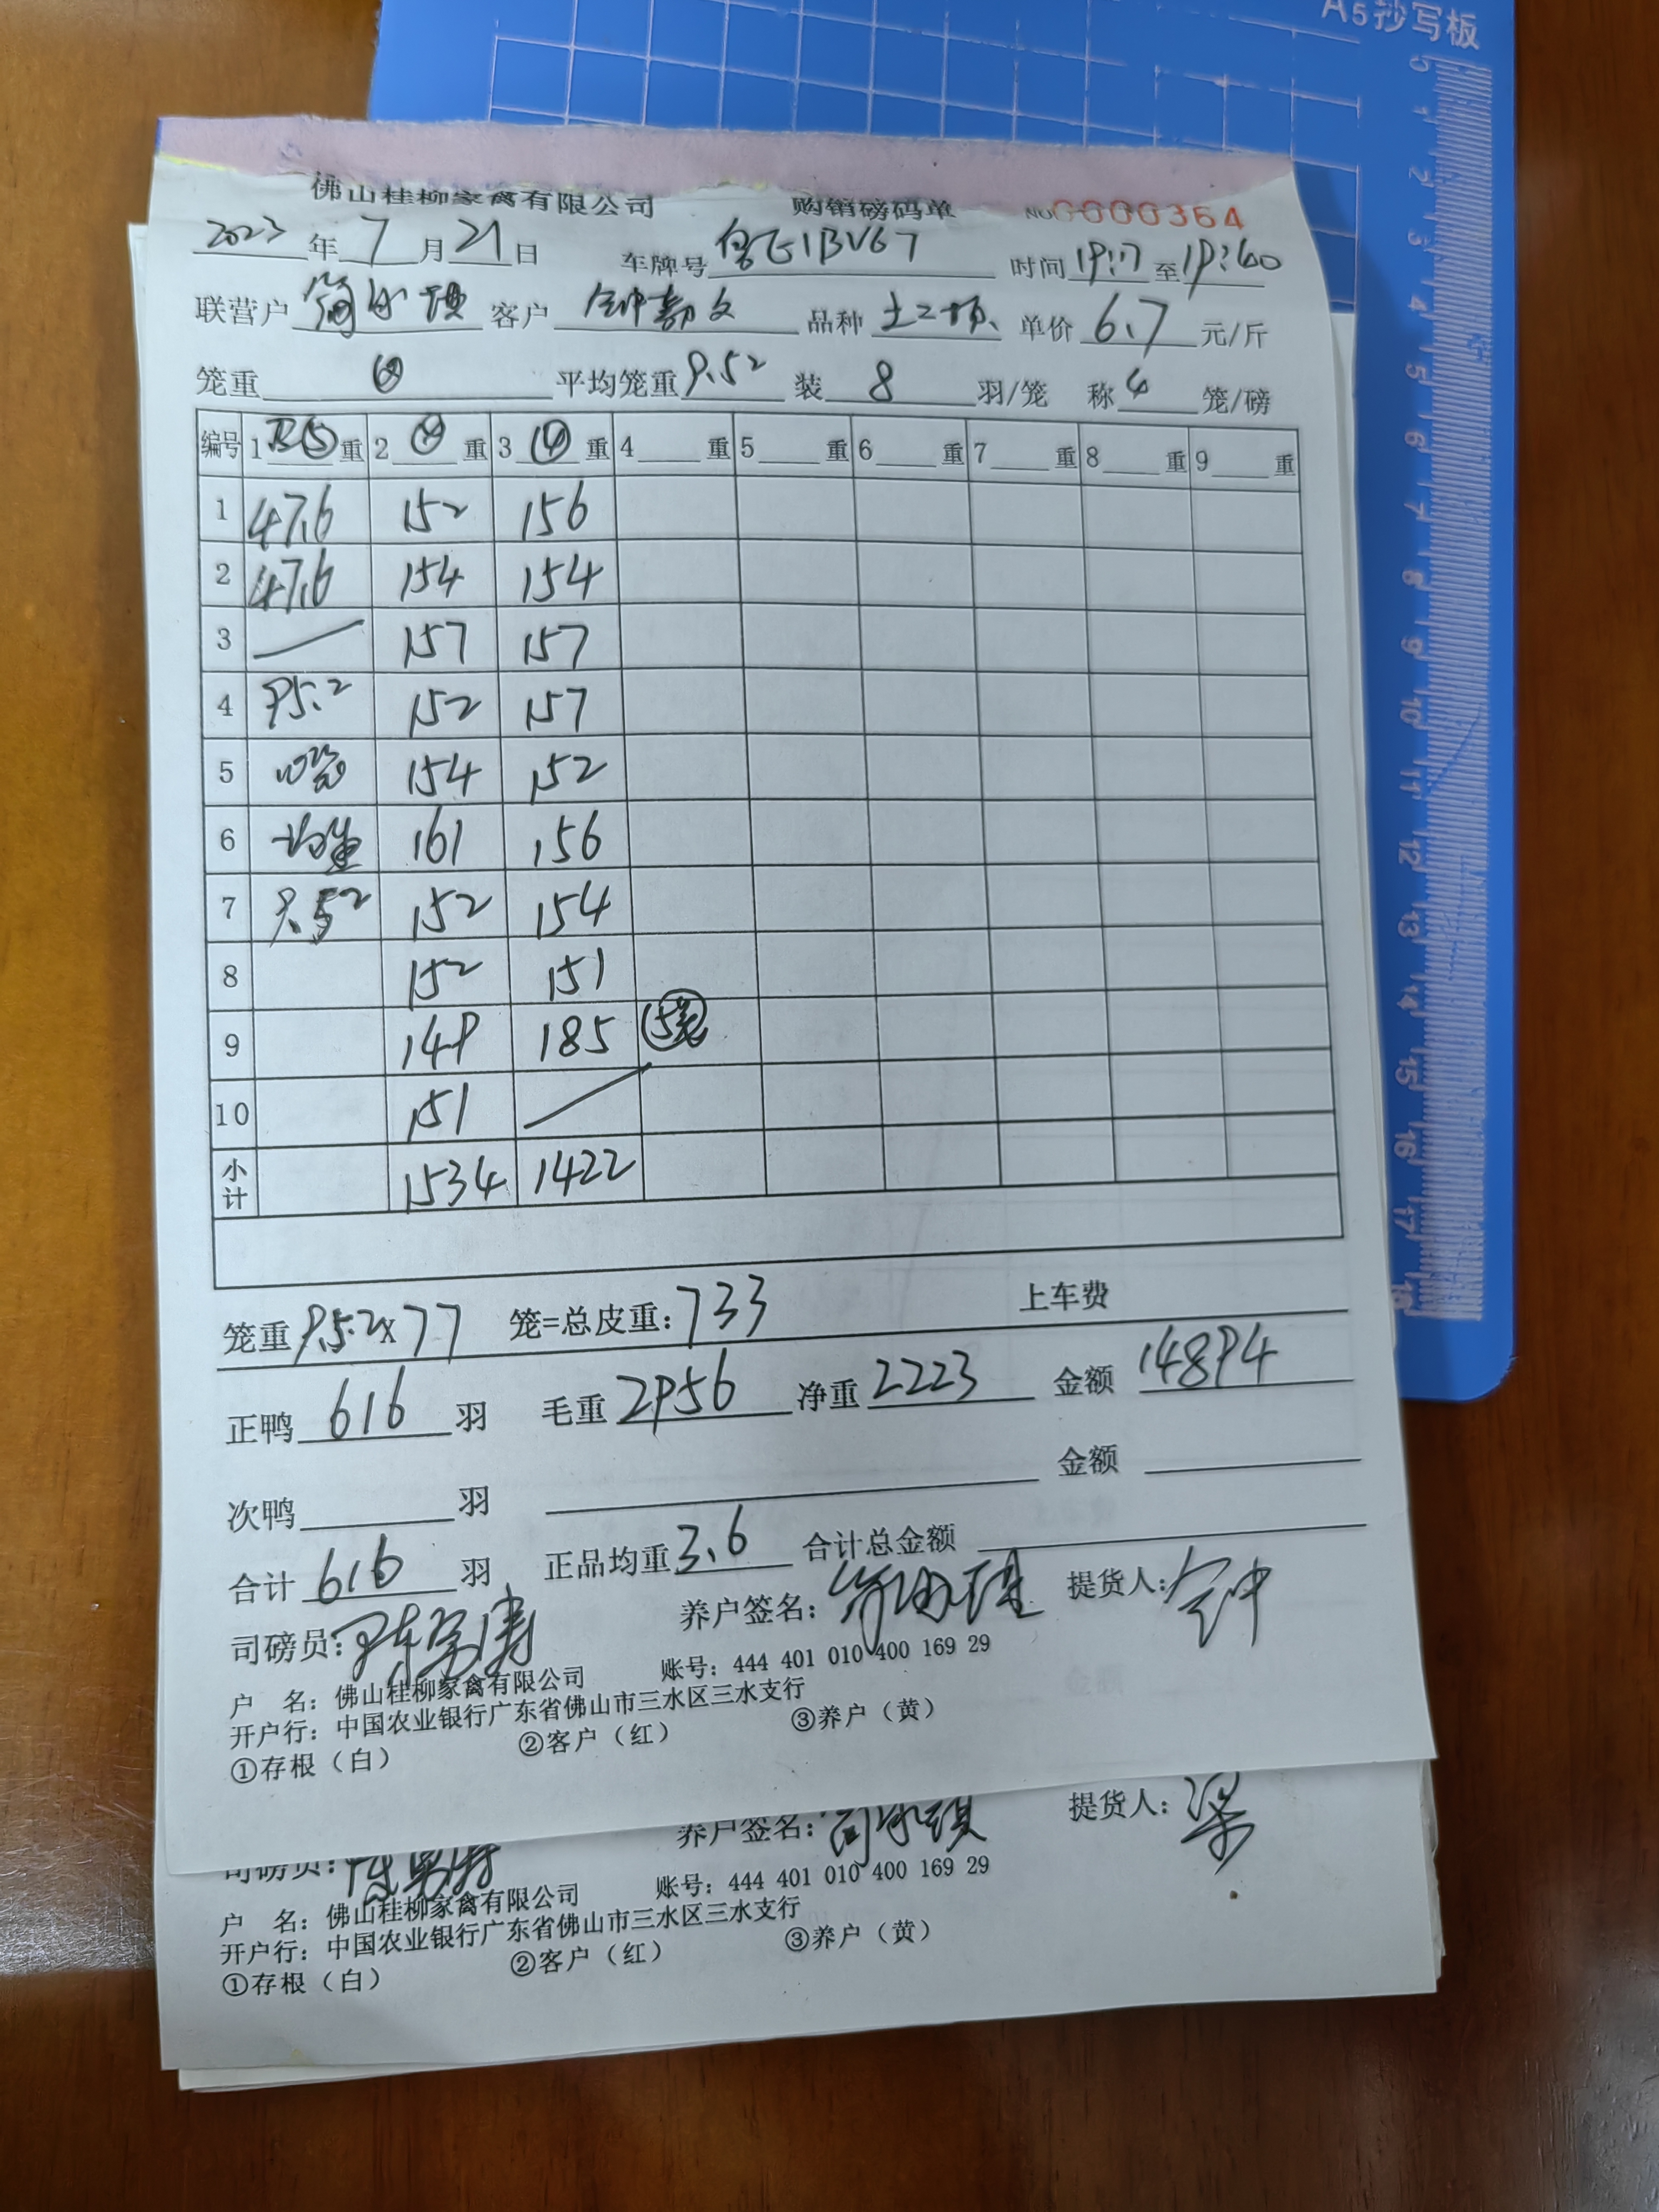 A5抄写板
0 1 2 3 4 5 6 7 8 9 10 11 12 13 14 15 16 17 18
佛山桂柳家禽有限公司 购销磅码单 NO 0000364
2023年7月21日 车牌号 1BV67 时间 19:17 至 19:40
联营户 简 客户 钟 文 品种 土二 单价 6.7 元/斤
笼重 ④ 平均笼重 9.52 装 8 羽/笼 称 4 笼/磅
编号 1 皮⑤ 重 2 ④ 重 3 ④ 重 4 重 5 重 6 重 7 重 8 重 9 重
1 47.6 152 156
2 47.6 154 154
3 157 157
4 95.2 152 157
5 10笼 154 152
6 均重 161 156
7 9.52 152 154
8 152 151
9 149 185 5笼
10 151
小计 1534 1422
笼重 9.52×77 笼=总皮重：733 上车费
正鸭 616 羽 毛重 2956 净重 2223 金额 14894
次鸭 羽 金额
合计 616 羽 正品均重 3.6 合计总金额
司磅员： 养户签名： 提货人：钟
账号：444 401 010 400 169 29
户 名：佛山桂柳家禽有限公司
开户行：中国农业银行广东省佛山市三水区三水支行
①存根（白） ②客户（红） ③养户（黄）
司磅员： 养户签名： 提货人：梁
账号：444 401 010 400 169 29
户 名：佛山桂柳家禽有限公司
开户行：中国农业银行广东省佛山市三水区三水支行
①存根（白） ②客户（红） ③养户（黄）